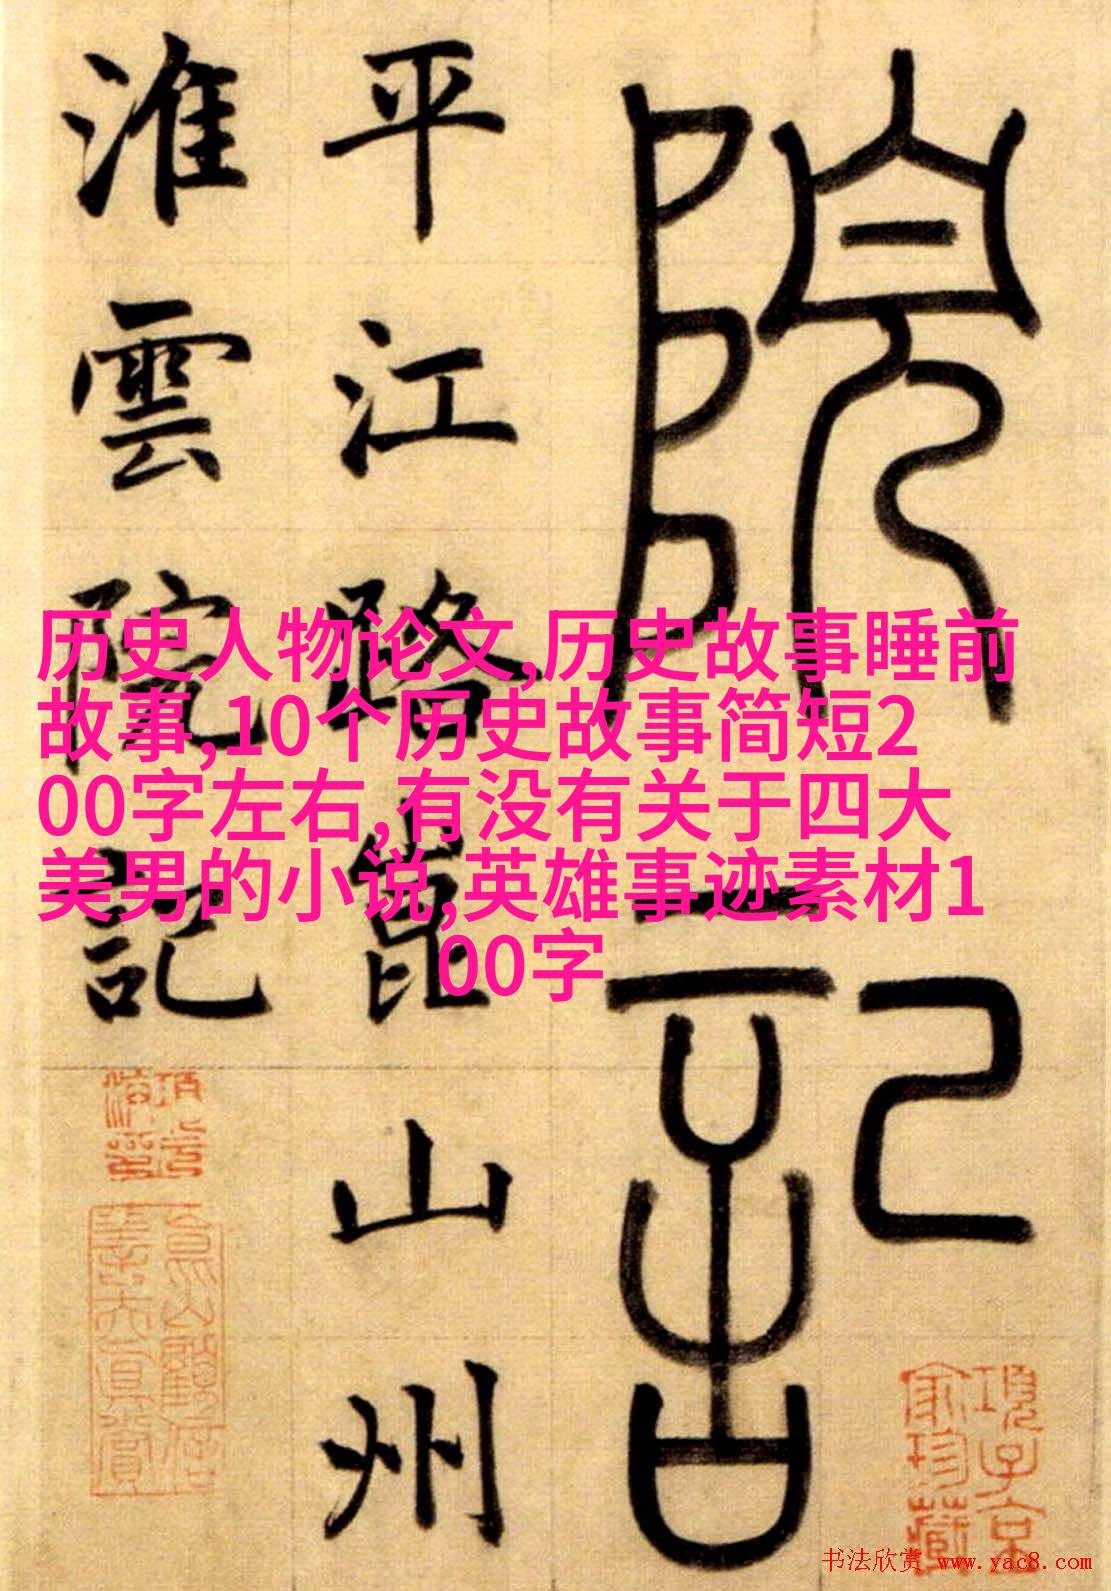 院記
平江路崑山州
淮雲院記
历史人物论文,历史故事睡前
故事,10个历史故事简短2
00字左右,有没有关于四大
美男的小说,英雄事迹素材1
00字
项子京
家珍藏
书法欣赏 www.yac8.com